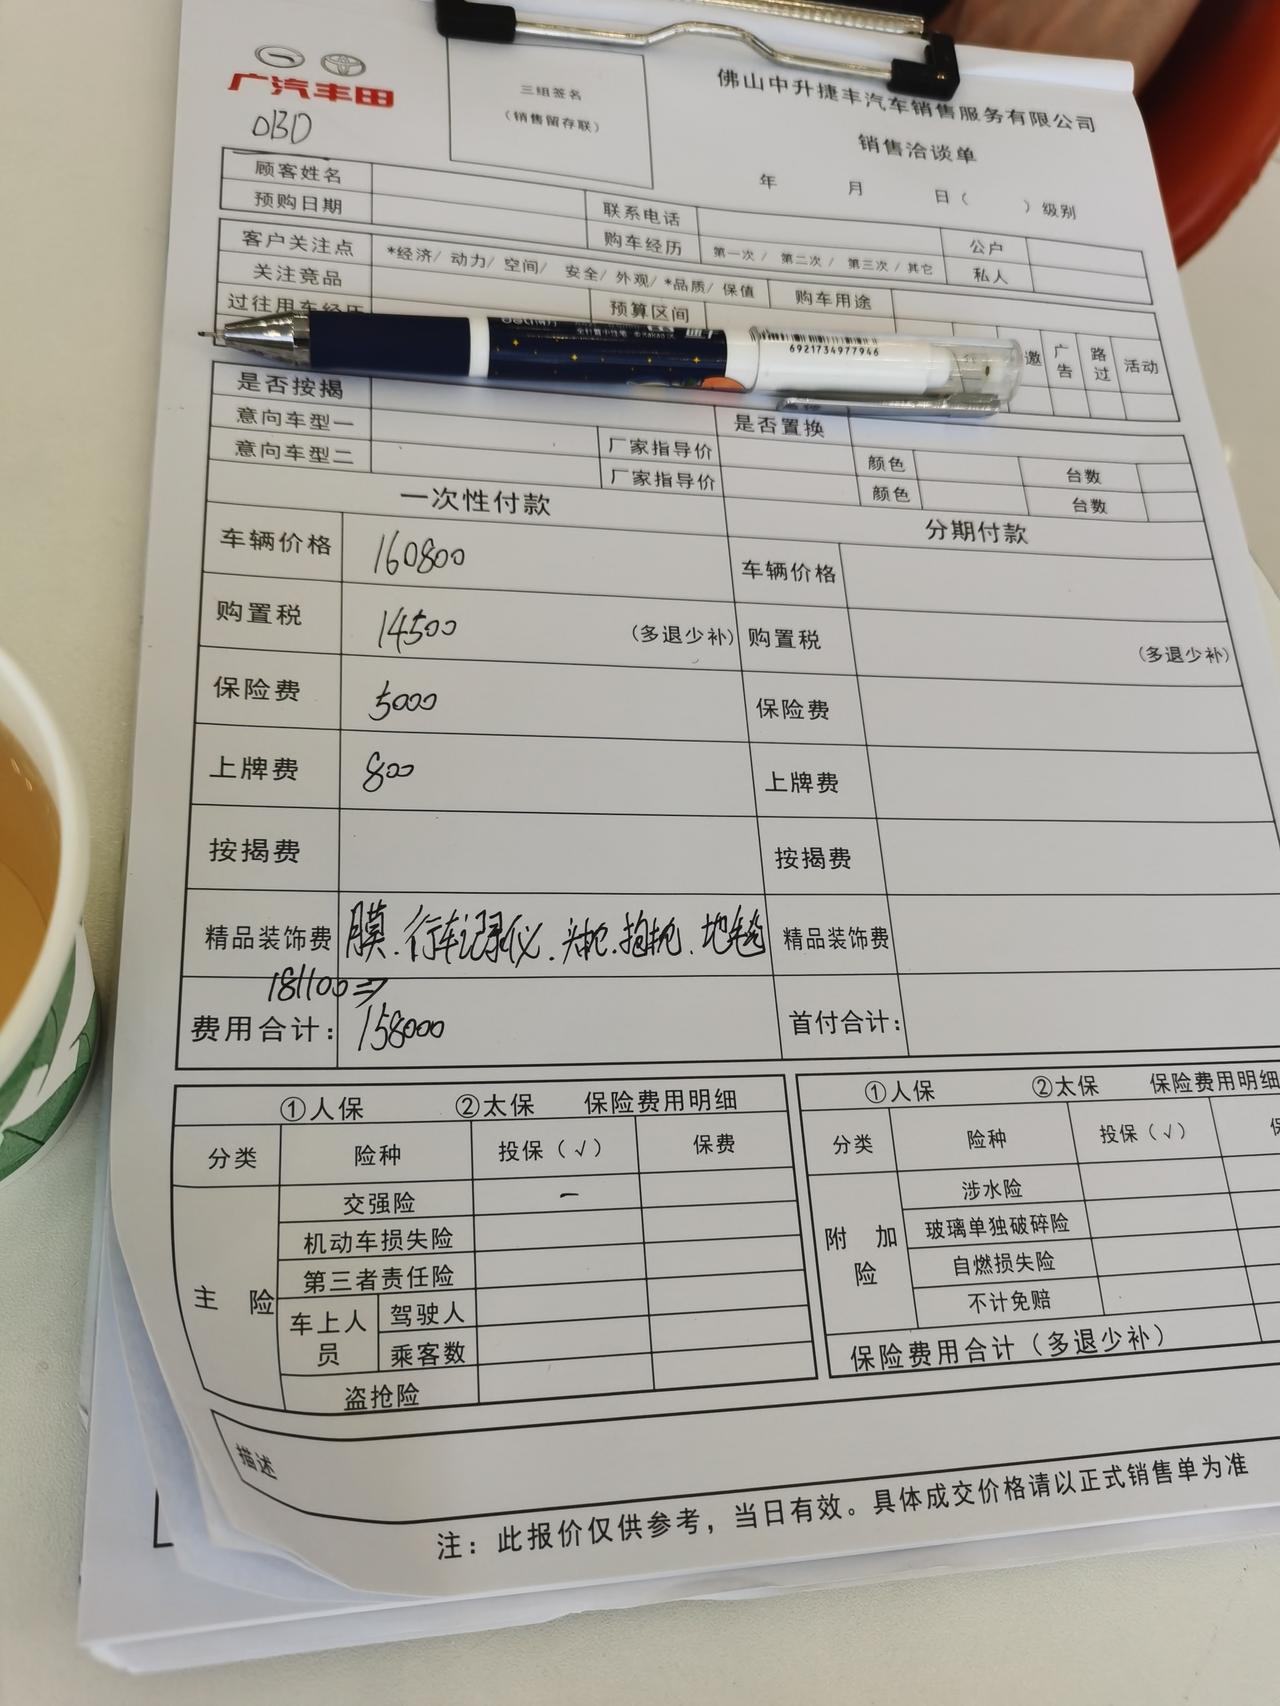 广汽丰田
OBD
三组签名
(销售留存联)
佛山中升捷丰汽车销售服务有限公司
销售洽谈单
年 月 日( )级别
顾客姓名
预购日期 联系电话 公户
购车经历 第一次/ 第二次/ 第三次/其它 私人
客户关注点 *经济/ 动力/ 空间/ 安全/ 外观/ *品质/ 保值 购车用途
关注竞品 预算区间
过往用车经历
6921734977946
邀 广告 路过 活动
是否按揭 是否置换
意向车型一 厂家指导价 颜色 台数
意向车型二 厂家指导价 颜色 台数
一次性付款 分期付款
车辆价格 160800 车辆价格
购置税 14500 (多退少补) 购置税 (多退少补)
保险费 5000 保险费
上牌费 800 上牌费
按揭费 按揭费
精品装饰费 膜.行车记录仪.头枕.抱枕.地毯 精品装饰费
181100⇒
费用合计: 158000 首付合计:
①人保 ②太保 保险费用明细 ①人保 ②太保 保险费用明细
分类 险种 投保(√) 保费 分类 险种 投保(√)
主险 交强险 - 附加险 涉水险
机动车损失险 玻璃单独破碎险
第三者责任险 自燃损失险
车上人员 驾驶人 不计免赔
乘客数 保险费用合计(多退少补)
盗抢险
描述
注: 此报价仅供参考，当日有效。具体成交价格请以正式销售单为准